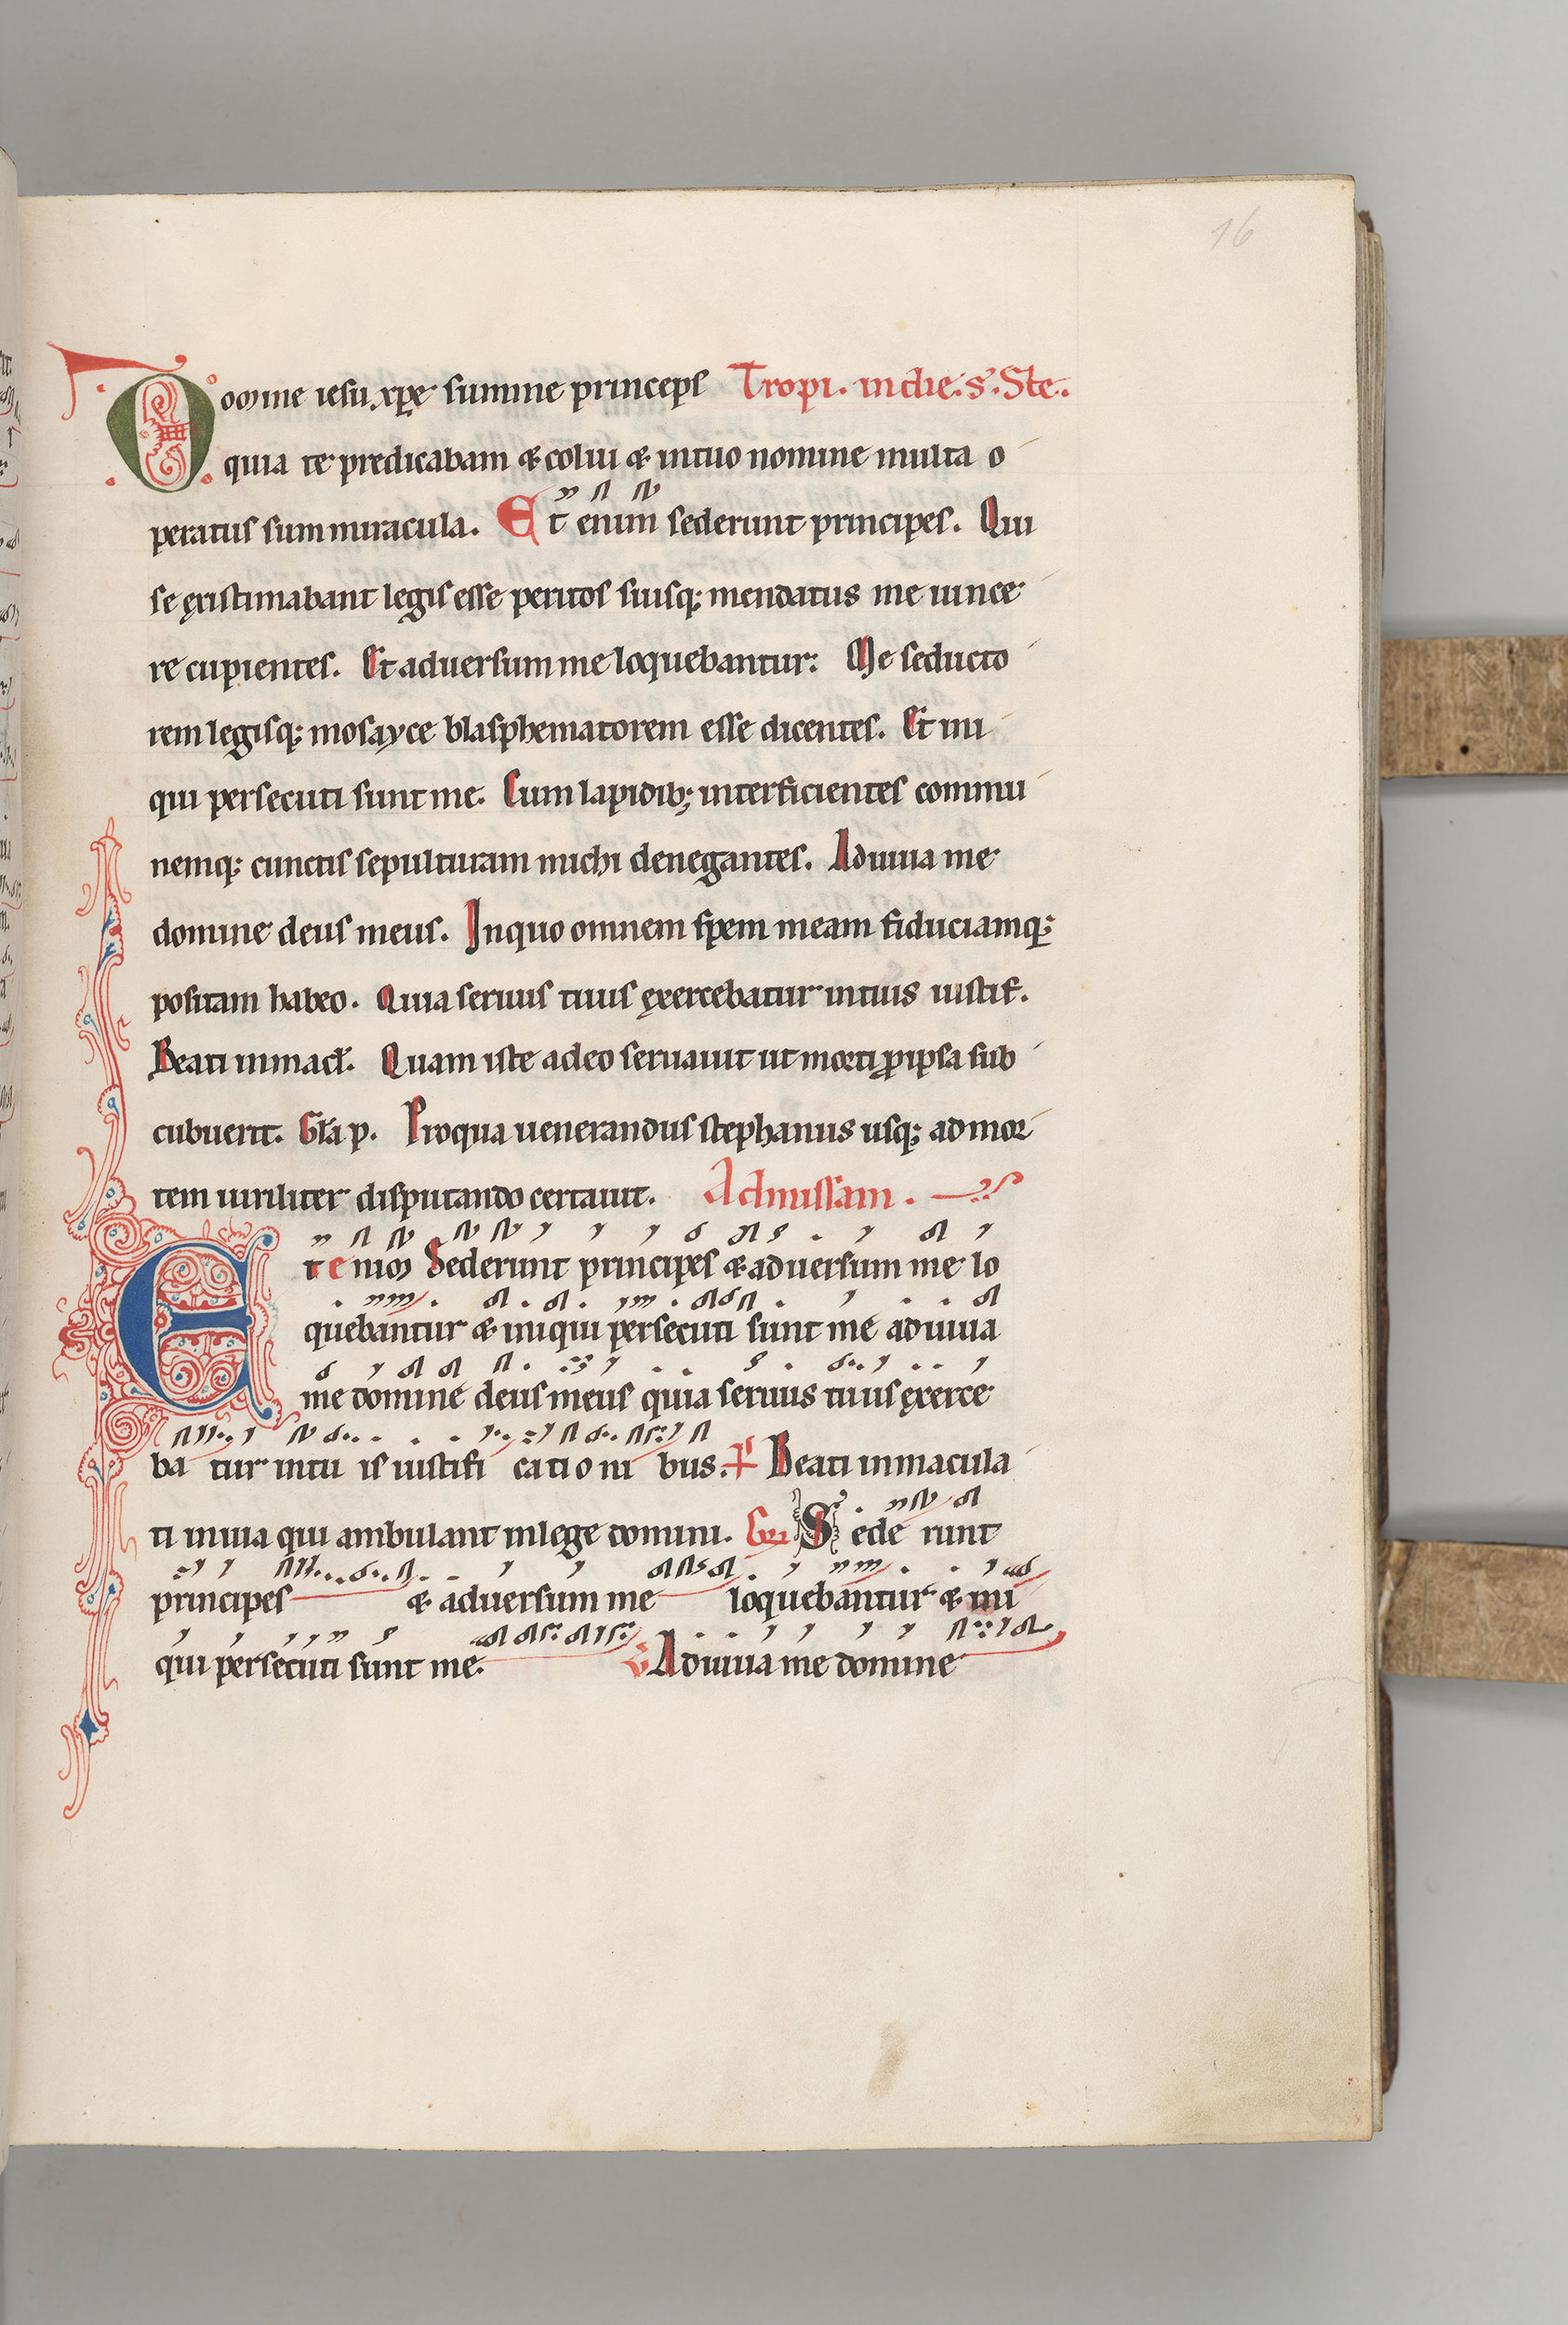 16
Domine iesu xp̄e summe princeps Tropi. in die. s̄. Ste.
quia te predicabam & colui & in tuo nomine multa o
peratus sum miracula. Et enim sederunt principes. Qui
se ęxistimabant legis esse peritos suisq; mendatiis me uince
re cupientes. Et aduersum me loquebantur: Me seducto
rem legisq; mosayce blasphematorem esse dicentes. Et ini
qui persecuti sunt me. Cum lapidib; interficientes commu
nemq; cunctis sepulturam michi denegantes. Adiuua me
domine deus meus. In quo omnem spem meam fiduciamq;
positam habeo. Quia seruus tuus ęxercebatur in tuis iustif.
Beati inmacl̄. Quam iste adeo seruauit ut morti ꝓ ipsa sub
cubuerit. Gl̄a p. Pro qua uenerandus stephanus usq; ad mor
tem uiriliter disputando certauit. Ad missam.
Et enim Sederunt principes & aduersum me lo
quebantur & iniqui persecuti sunt me adiuua
me domine deus meus quia seruus tuus ęxerce
ba tur in tu is iustifi cati o ni bus. P̄ Beati inmacula
ti in uia qui ambulant in lege domini. Gr̄ Sede runt
principes & aduersum me loquebantur & ini
qui persecuti sunt me. V Adiuua me domine